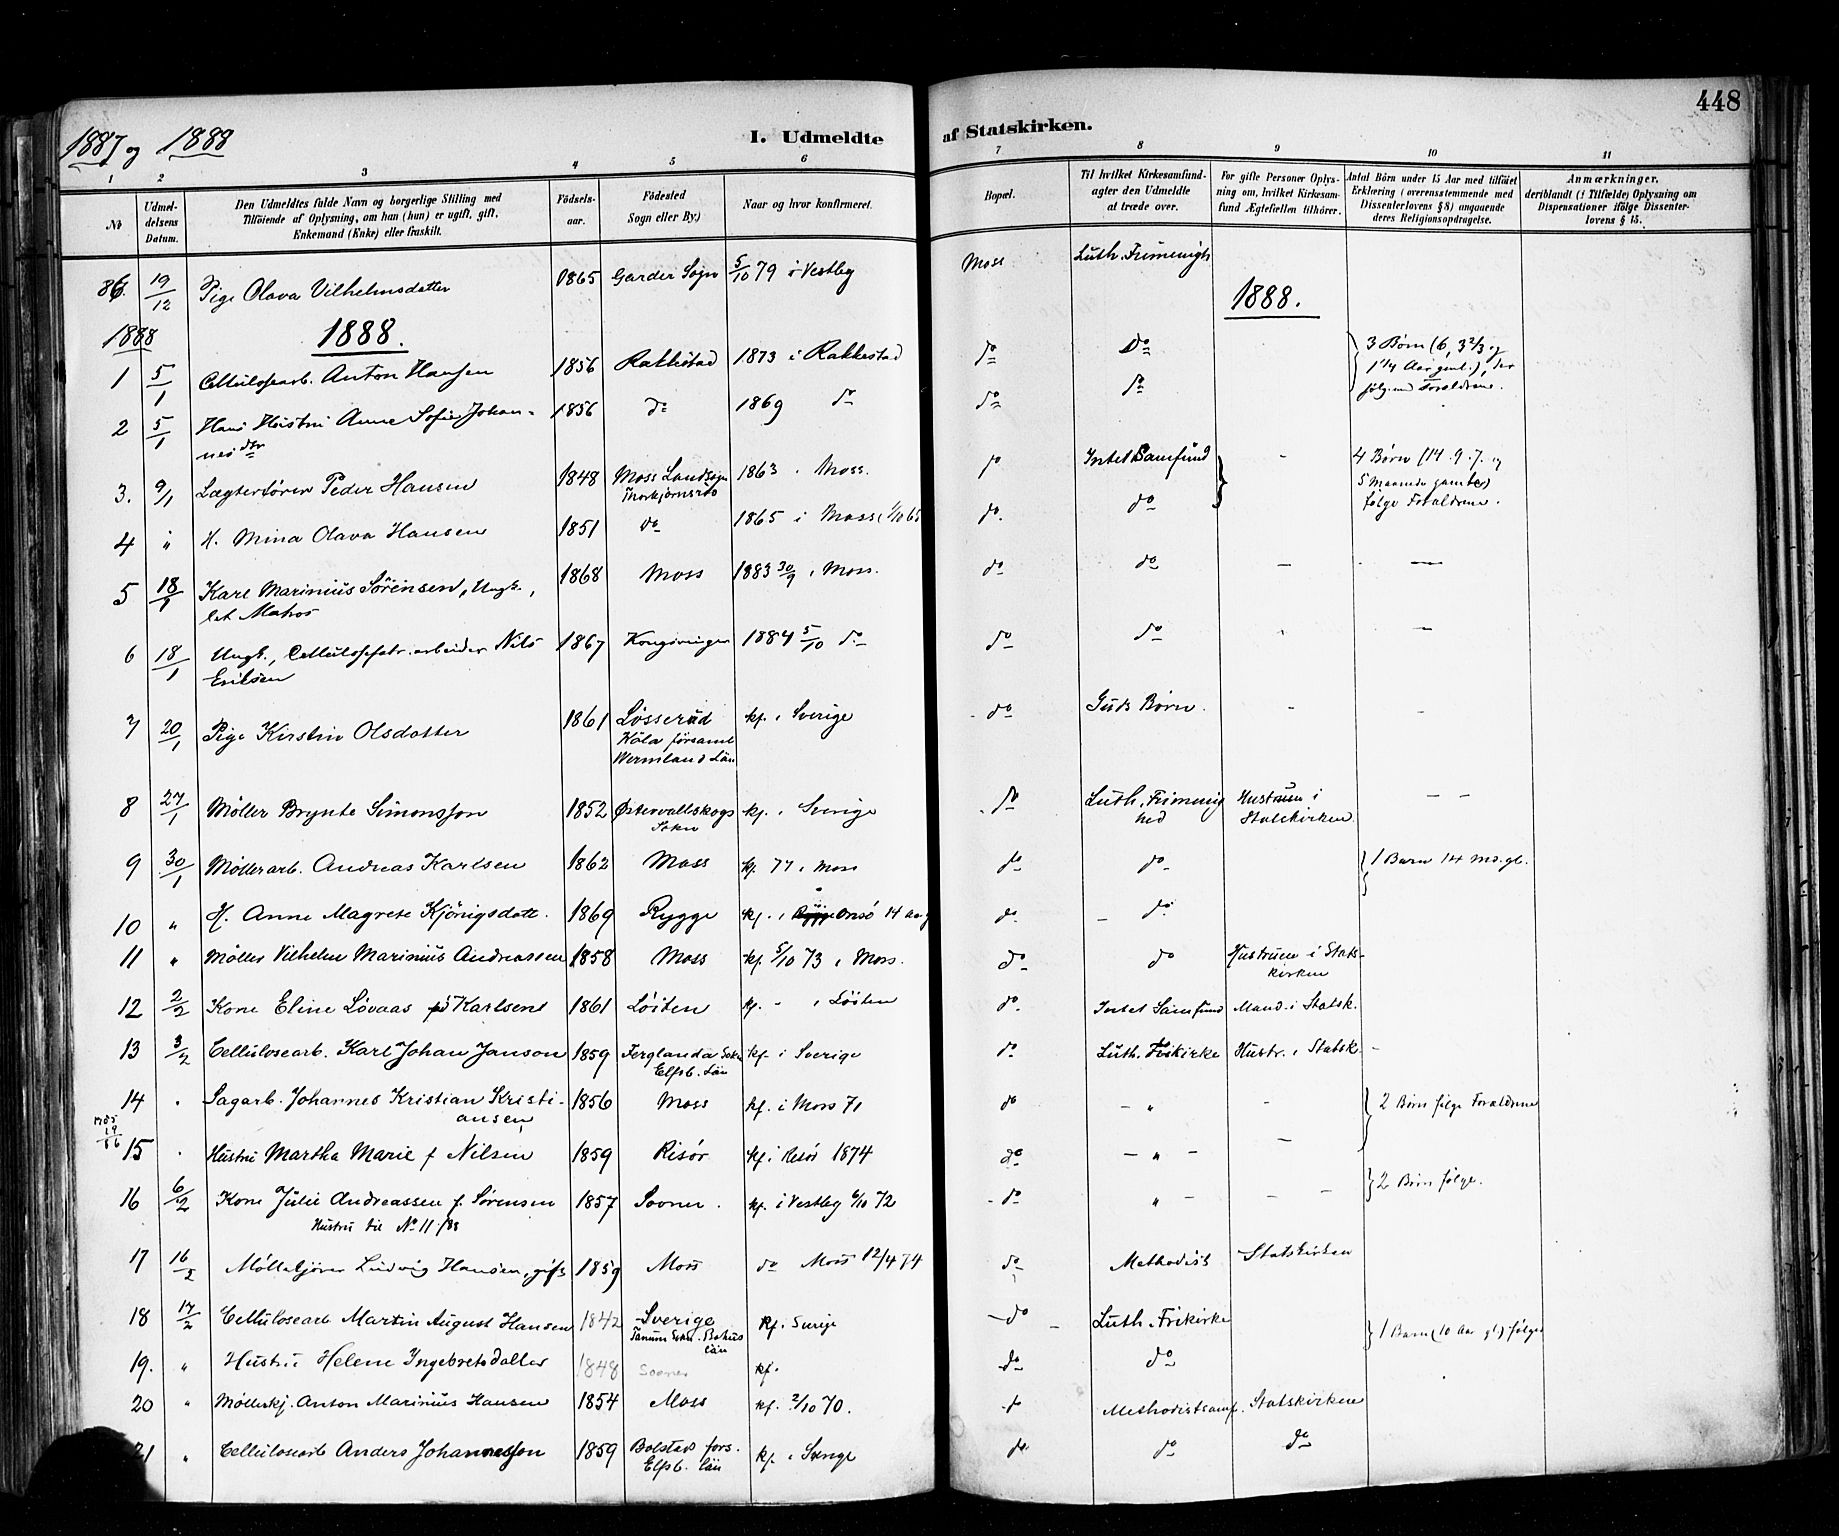 448
1887 og 1888
I. Udmeldte af Statskirken.
1 2 3 4 5 6 7 8 9 10 11
No
Udmel-
delsens
Datum.
Den Udmeldtes fulde Navn og borgerlige Stilling med
Tilføiende af Oplysning, om han (hun) er ugift, gift,
Enkemand (Enke) eller fraskilt.
Fødsels-
aar.
Fødested
Sogn eller By)
Naar og hvor konfirmeret.
Bopæl.
Til hvilket Kirkesamfund-
agter den Udmeldte
at træde over.
For gifte Personer Oplys-
ning om, hvilket Kirkesam-
fund Ægtefællen tilhører.
Antal Børn under 15 Aar med tilføiet
Erklæring (overensstemmende med
Dissenterlovens § 8) angaaende
deres Religionsopdragelse.
Anmærkninger,
deriblandt (i Tilfælde) Oplysning om
Dispensationer ifølge Dissenter-
lovens § 15.
86. 19/12 Pige Olava Vilhelmsdatter 1865 Garder Sogn 5/10 79 i Vestby Moss Luth. Frimenigh
1888 1888. 1888.
1 5/1 Cellulosearb. Anton Hansen 1856 Rakkestad 1873 i Rakkestad do do 3 Børn (6, 3 2/3 og
1 1/4 Aar gml.), der
følg. med Forældrene.
2 5/1 Hans Hustru Anne Sofie Johan- 1856 do 1869 do do do
nesdtr
3. 9/1 Lægterfører Peder Hansen 1848 Moss Landsogn 1863 i Moss. do Intet Samfund - 4 Børn (14. 9. 7. og
5 Maaneder gamle)
følge Forældrene.
4 " H. Mina Olava Hansen 1851 do 1865 i Moss (1/10 65 do. do
5 18/1 Karl Marinius Sørensen, Ungk., 1868 Moss 1883 30/9 i Moss. do do - -
let Matros
6 18/1 Ungk., Cellulosefabr. arbeider Nils 1867 Kongsvinger 1884 5/10 do do do - -
Eriksen
7 20/1 Pige Kirstin Olsdatter 1861 Løsserud kf. i Sverige do Guds Børn. - -
Køla församl
Wermland Län
8 27/1 Møller Brynte Simonsson 1852 Østervallskogs kf. i Sverige do Luth. Frimenig Hustruen i - -
Sokn hed Statskirken
9 30/1 Møllerarb. Andreas Karlsen 1862 Moss kf. 77 i Moss do do 1 Barn 14 md. gl.
10 " H. Anne Magrete Kjønigsdatt. 1869 Rygge kf. i Onsø 14 Aar g do - do
11 " Møller Vilhelm Marinius Andreassen 1858 Moss kf. 5/10 73 i Moss. do do Hustruen i Stats-
kirken
12 2/2 Kone Eline Løvaas f. Karlsen 1861 Løiten kf. - i Løiten do. Intet Samfund Mand i Statsk.
13 3/2 Cellulosearb. Karl Johan Janson 1859 Ferglanda Sokn kf. i Sverige do Luth. Frikirke Hustr. i Statsk. -
Elfsb. Län
14 " Sagarb. Johannes Kristian Kristi- 1856 Moss kf. i Moss 71 do - " - 2 Børn følge Forældrene
ansen,
15 " Hustru Martha Marie f Nilsen 1859 Risør kf. i Risør 1874 do - " - -
16 6/2 Kone Julie Andreassen f. Sørensen 1857 Sooner. kf. i Vestby 6/10 72 do " - - - 2 Børn følge.
Hustru til No 11/88
17 16/2 Møllekjører Ludvig Hansen, gift 1859 Moss do Moss 12/4 74 do Methodist Statskirken
18 17/2 Cellulosearb. Martin August Hansen 1842 Sverige kf. i Sverige do Luth. Frikirke 1 Barn (10 Aar gl) følge
Tanum Sokn. Bohus
län
19. " Hustru Helene Ingebretsdatter 1848 Sooner kf. do do
20 " Møllerkj. Anton Marinius Hansen 1854 Moss kf. 2/10 70. do Methodistsamf. Statskirken
21 " Cellulosearb Anders Johannesson 1859 Bolstads fors. kf. i Sverige do do do
Elfsb. län